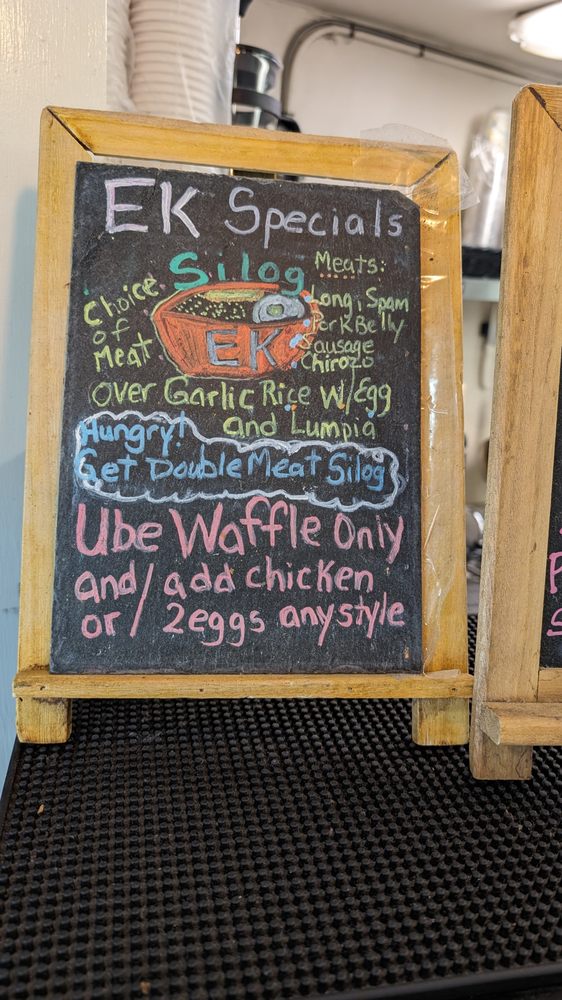 EK Specials
Silog
Choice
of
Meat
EK
Meats:
Long, Spam
Pork Belly
Sausage
Chirozo
over Garlic Rice W/Egg
and Lumpia
Hungry!
Get Double Meat Silog
Ube Waffle Only
and/ add chicken
or/ 2eggs anystyle